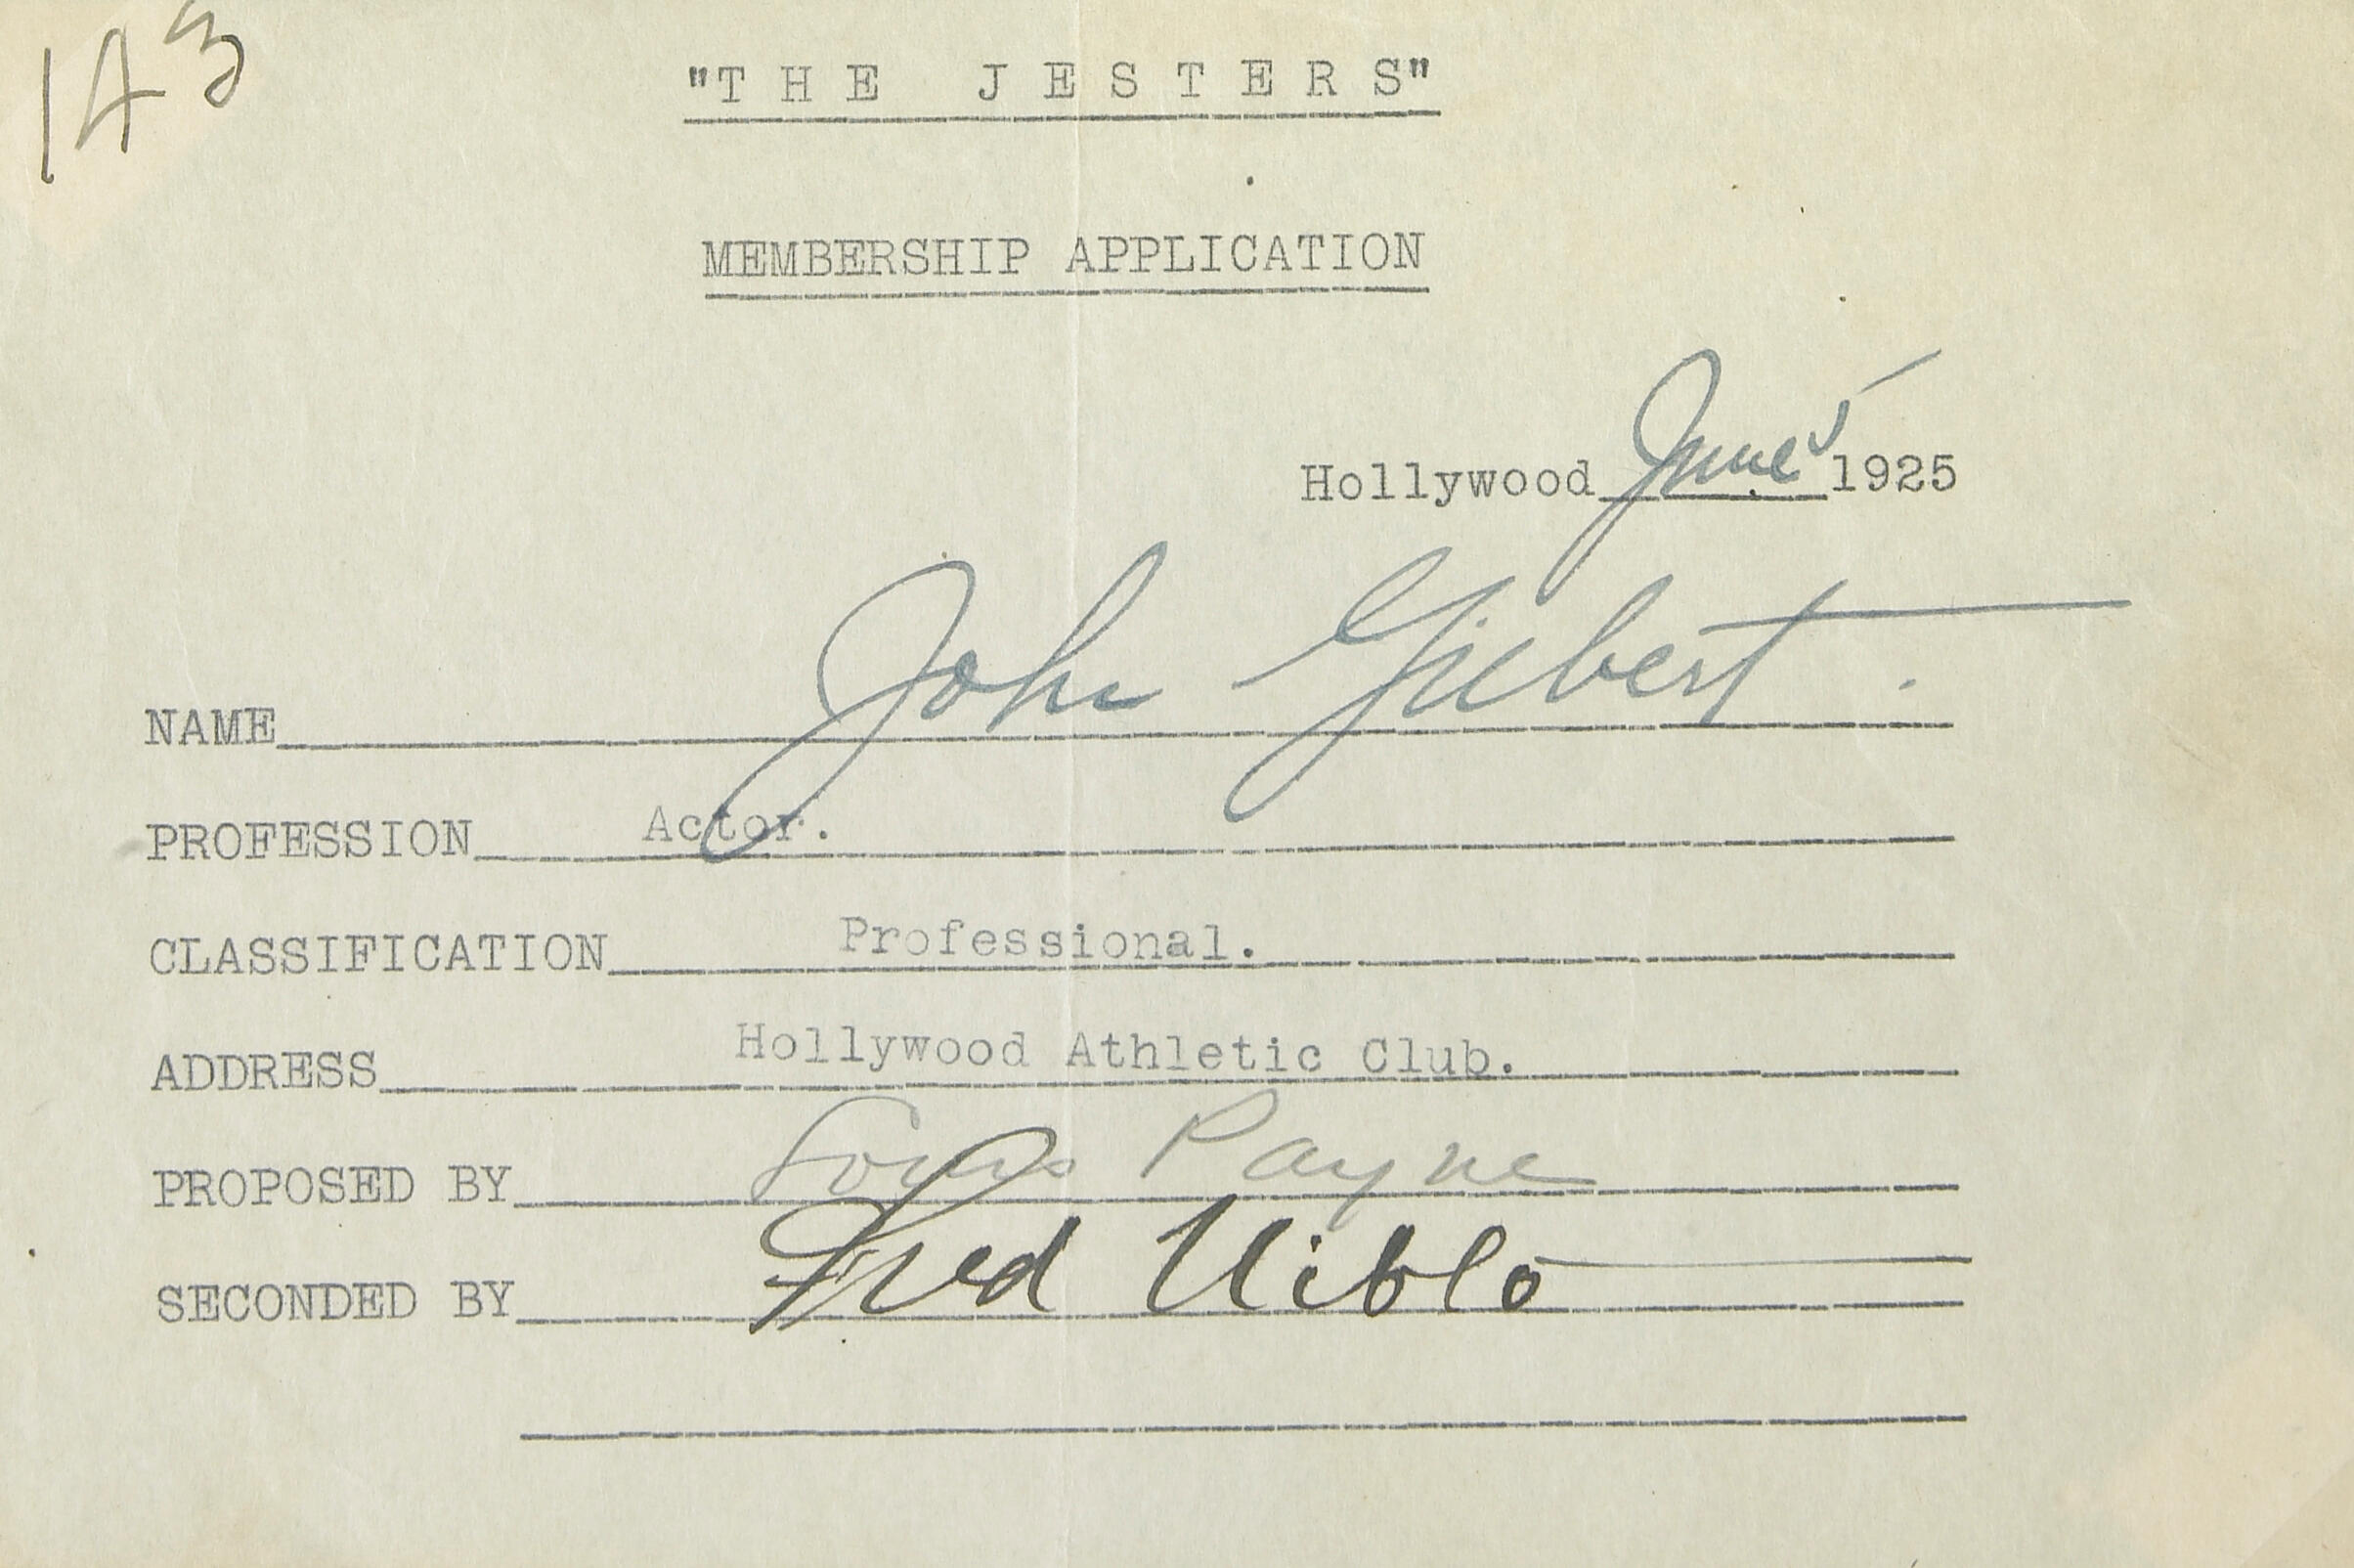 1A3
"THE JESTERS"
MEMBERSHIP APPLICATION
Hollywood June 5 1925
NAME John Gilbert.
PROFESSION Actor.
CLASSIFICATION Professional.
ADDRESS Hollywood Athletic Club.
PROPOSED BY Louis Payne
SECONDED BY Fred Niblo